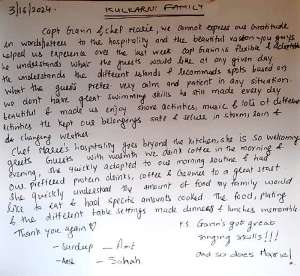 3/16/2024.
KULKARNI FAMILY
Capt Gravin & chef Marie, we cannot express our gratitude
in words/letters to the hospitality and the beautiful vacation you guys
helped us experience over the last week. Capt Gravin is flexible & adaptable
He understands what the guests would like at any given day
He understands the different islands & recommends spots based on
what the guests prefer very calm and patient in any situation.
We dont have great swimming skills he still made every day
beautiful & made us enjoy shore activities, music & lots of different
activities. He kept our belongings safe & secure in storms, rain &
changing weather.
Chef Marie's hospitality goes beyond the kitchen, she is so welcoming
greets Guests with warmth we drink coffee in the morning &
evening, she quickly adapted to our morning routine & had
our preferred protein drinks, coffee & creamer to a great start
She quickly understood the amount of food my family would
like to eat & had specific amounts cooked. The food, plating
& the different table settings made dinners & lunches memorable
Thank you again
- Sandeep - Amit
- Sahah
P.S Gravin's got great
singing skills!!!
and so does Marie!